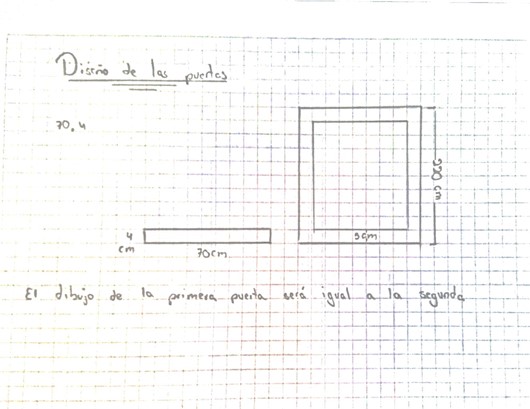 Diseño de las puertas
70.4
220 cm
4
cm
9cm
70cm
El dibujo de la primera puerta será igual a la segunda